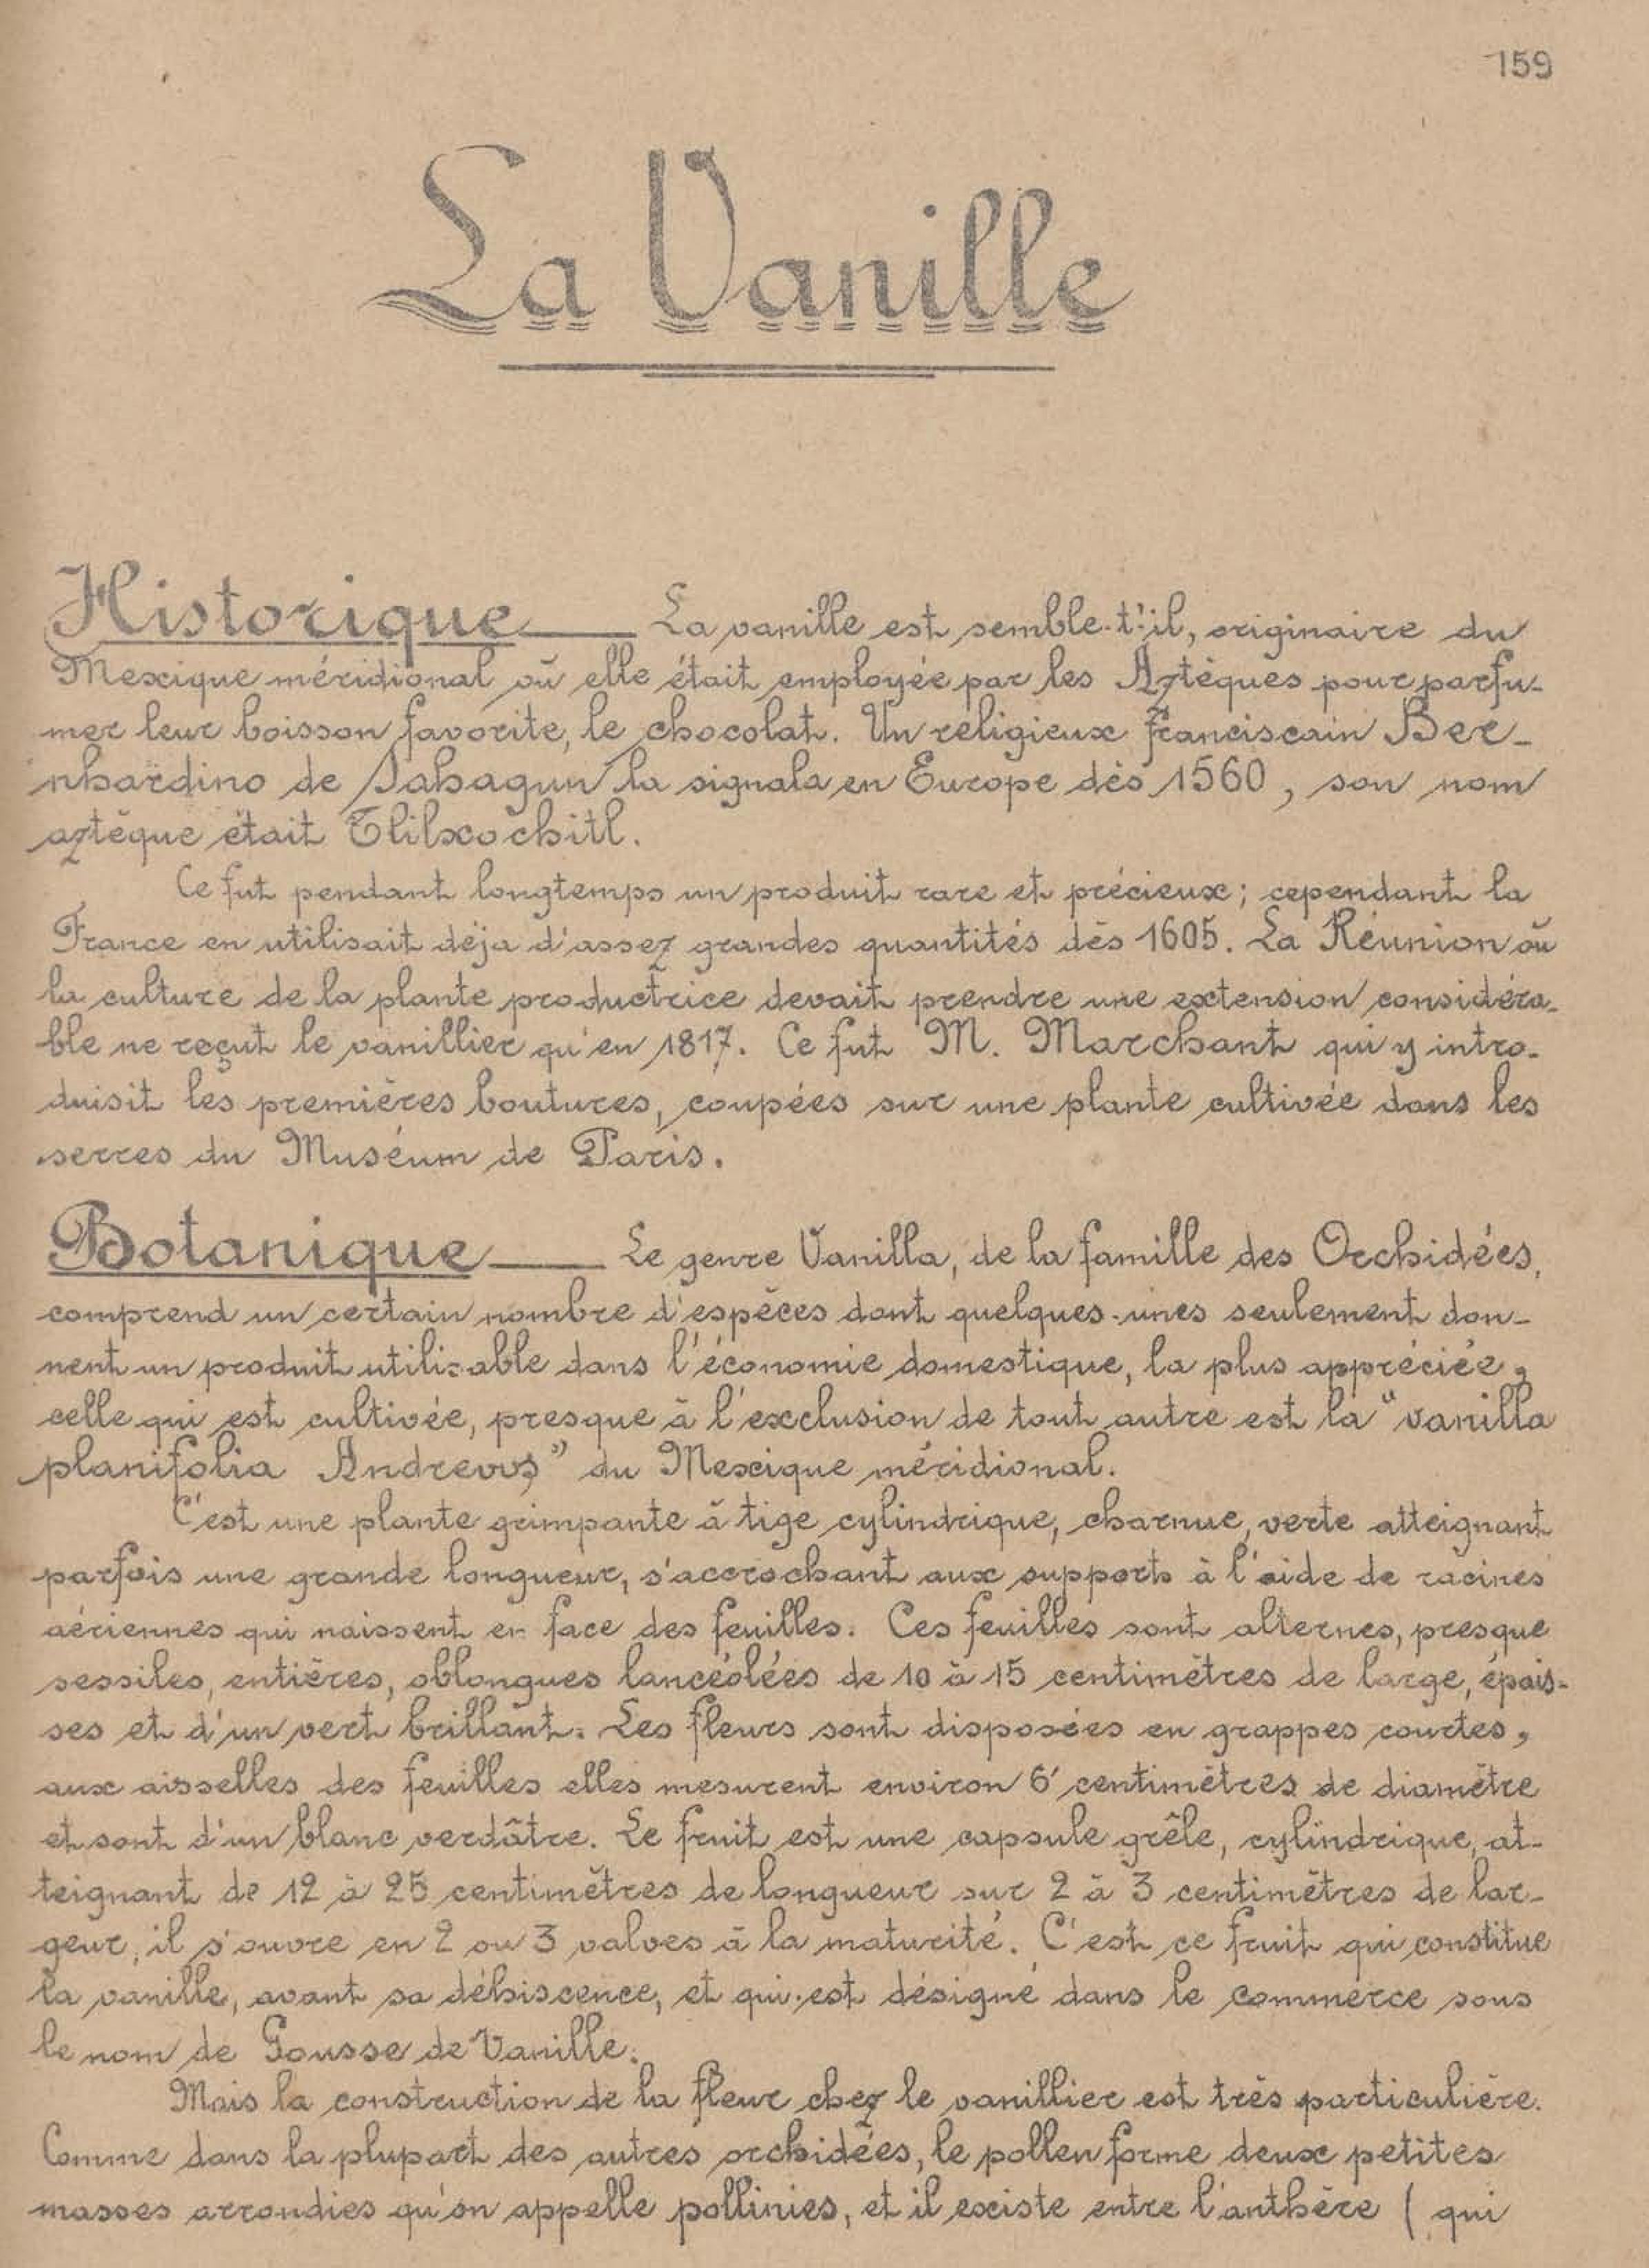 159
La Vanille
Historique La vanille est semble-t'il, originaire du
Mexique méridional où elle était employée par les Aztèques pour parfu-
mer leur boisson favorite, le chocolat. Un religieux franciscain Ber-
nhardino de Sahagun la signala en Europe dès 1560, son nom
aztèque était Tlilxochitl.
Ce fut pendant longtemps un produit rare et précieux; cependant la
France en utilisait déja d'assez grandes quantités dès 1605. La Réunion où
la culture de la plante productrice devait prendre une extension considéra-
ble ne reçut le vanillier qu'en 1817. Ce fut M. Marchant qui y intro-
duisit les premières boutures, coupées sur une plante cultivée dans les
serres du Muséum de Paris.
Botanique Le genre Vanilla, de la famille des Orchidées,
comprend un certain nombre d'espèces dont quelques-unes seulement don-
nent un produit utilisable dans l'économie domestique, la plus appréciée,
celle qui est cultivée, presque à l'exclusion de tout autre est la "vanilla
planifolia Andrews" du Mexique méridional.
C'est une plante grimpante à tige cylindrique, charnue, verte atteignant
parfois une grande longueur, s'accrochant aux supports à l'aide de racines
aériennes qui naissent en face des feuilles. Ces feuilles sont alternes, presque
sessiles, entières, oblongues lancéolées de 10 à 15 centimètres de large, épais-
ses et d'un vert brillant. Les fleurs sont disposées en grappes courtes,
aux aisselles des feuilles elles mesurent environ 6 centimètres de diamètre
et sont d'un blanc verdâtre. Le fruit est une capsule grêle, cylindrique, at-
teignant de 12 à 25 centimètres de longueur sur 2 à 3 centimètres de lar-
geur, il s'ouvre en 2 ou 3 valves à la maturité. C'est ce fruit qui constitue
la vanille, avant sa déhiscence, et qui est désigné dans le commerce sous
le nom de Gousse de Vanille.
Mais la construction de la fleur chez le vanillier est très particulière.
Comme dans la plupart des autres orchidées, le pollen forme deux petites
masses arrondies qu'on appelle pollinies, et il existe entre l'anthère ( qui